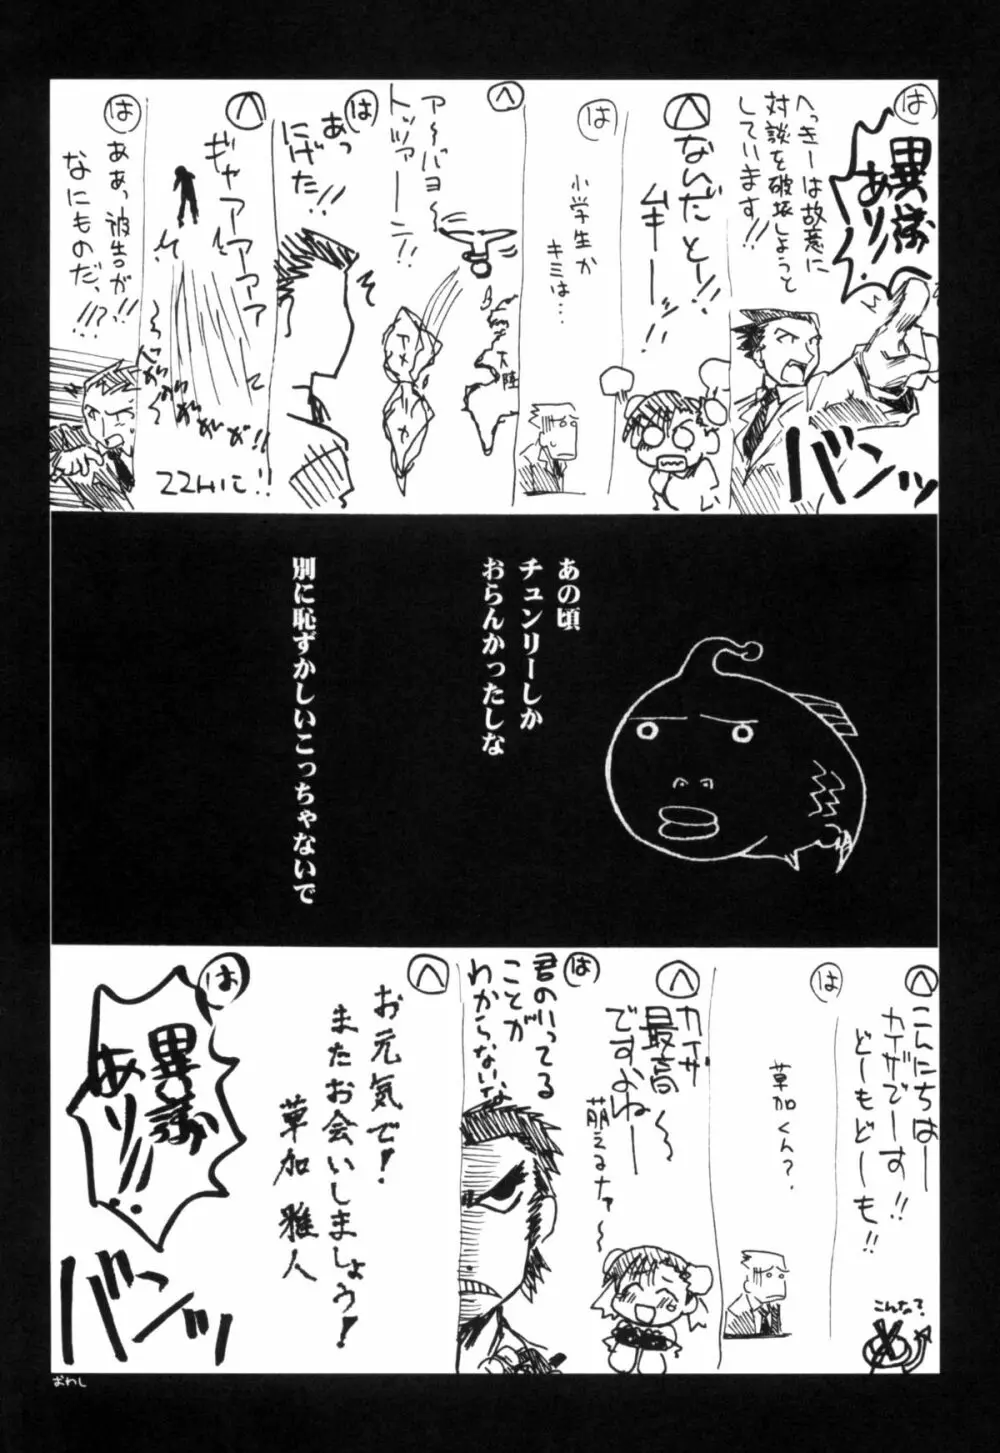 は
異議
あり!!
へっきーは故意に
対談を破壊しようと
しています!!
バンッ
へ
なんだとー!!
ムキーー!!
は
小学生か
キミは…
へ
ア〜バヨ〜
トッツァーーン!!
大陸
アメ
リカ
は
あっ
にげた!!
へ
ギャアアアアア
ががががが!!
ZZHに!!
は
ああっ被告が
なにものだ、!!?!!
あの頃
チュンリーしか
おらんかったしな
別に恥ずかしいこっちゃないで
へ
こんにちはー
カイザでーす!!
どーもどーも!!
こんな?
は
草加くん?
へ
カイザ
最高〜
ですよねー
萌えるナァ〜
は
君のいってる
ことが
わからないな
へ
お元気で!
またお会いしましょう!
草加 雅人
は
異議
あり!!
バンッ
おわし